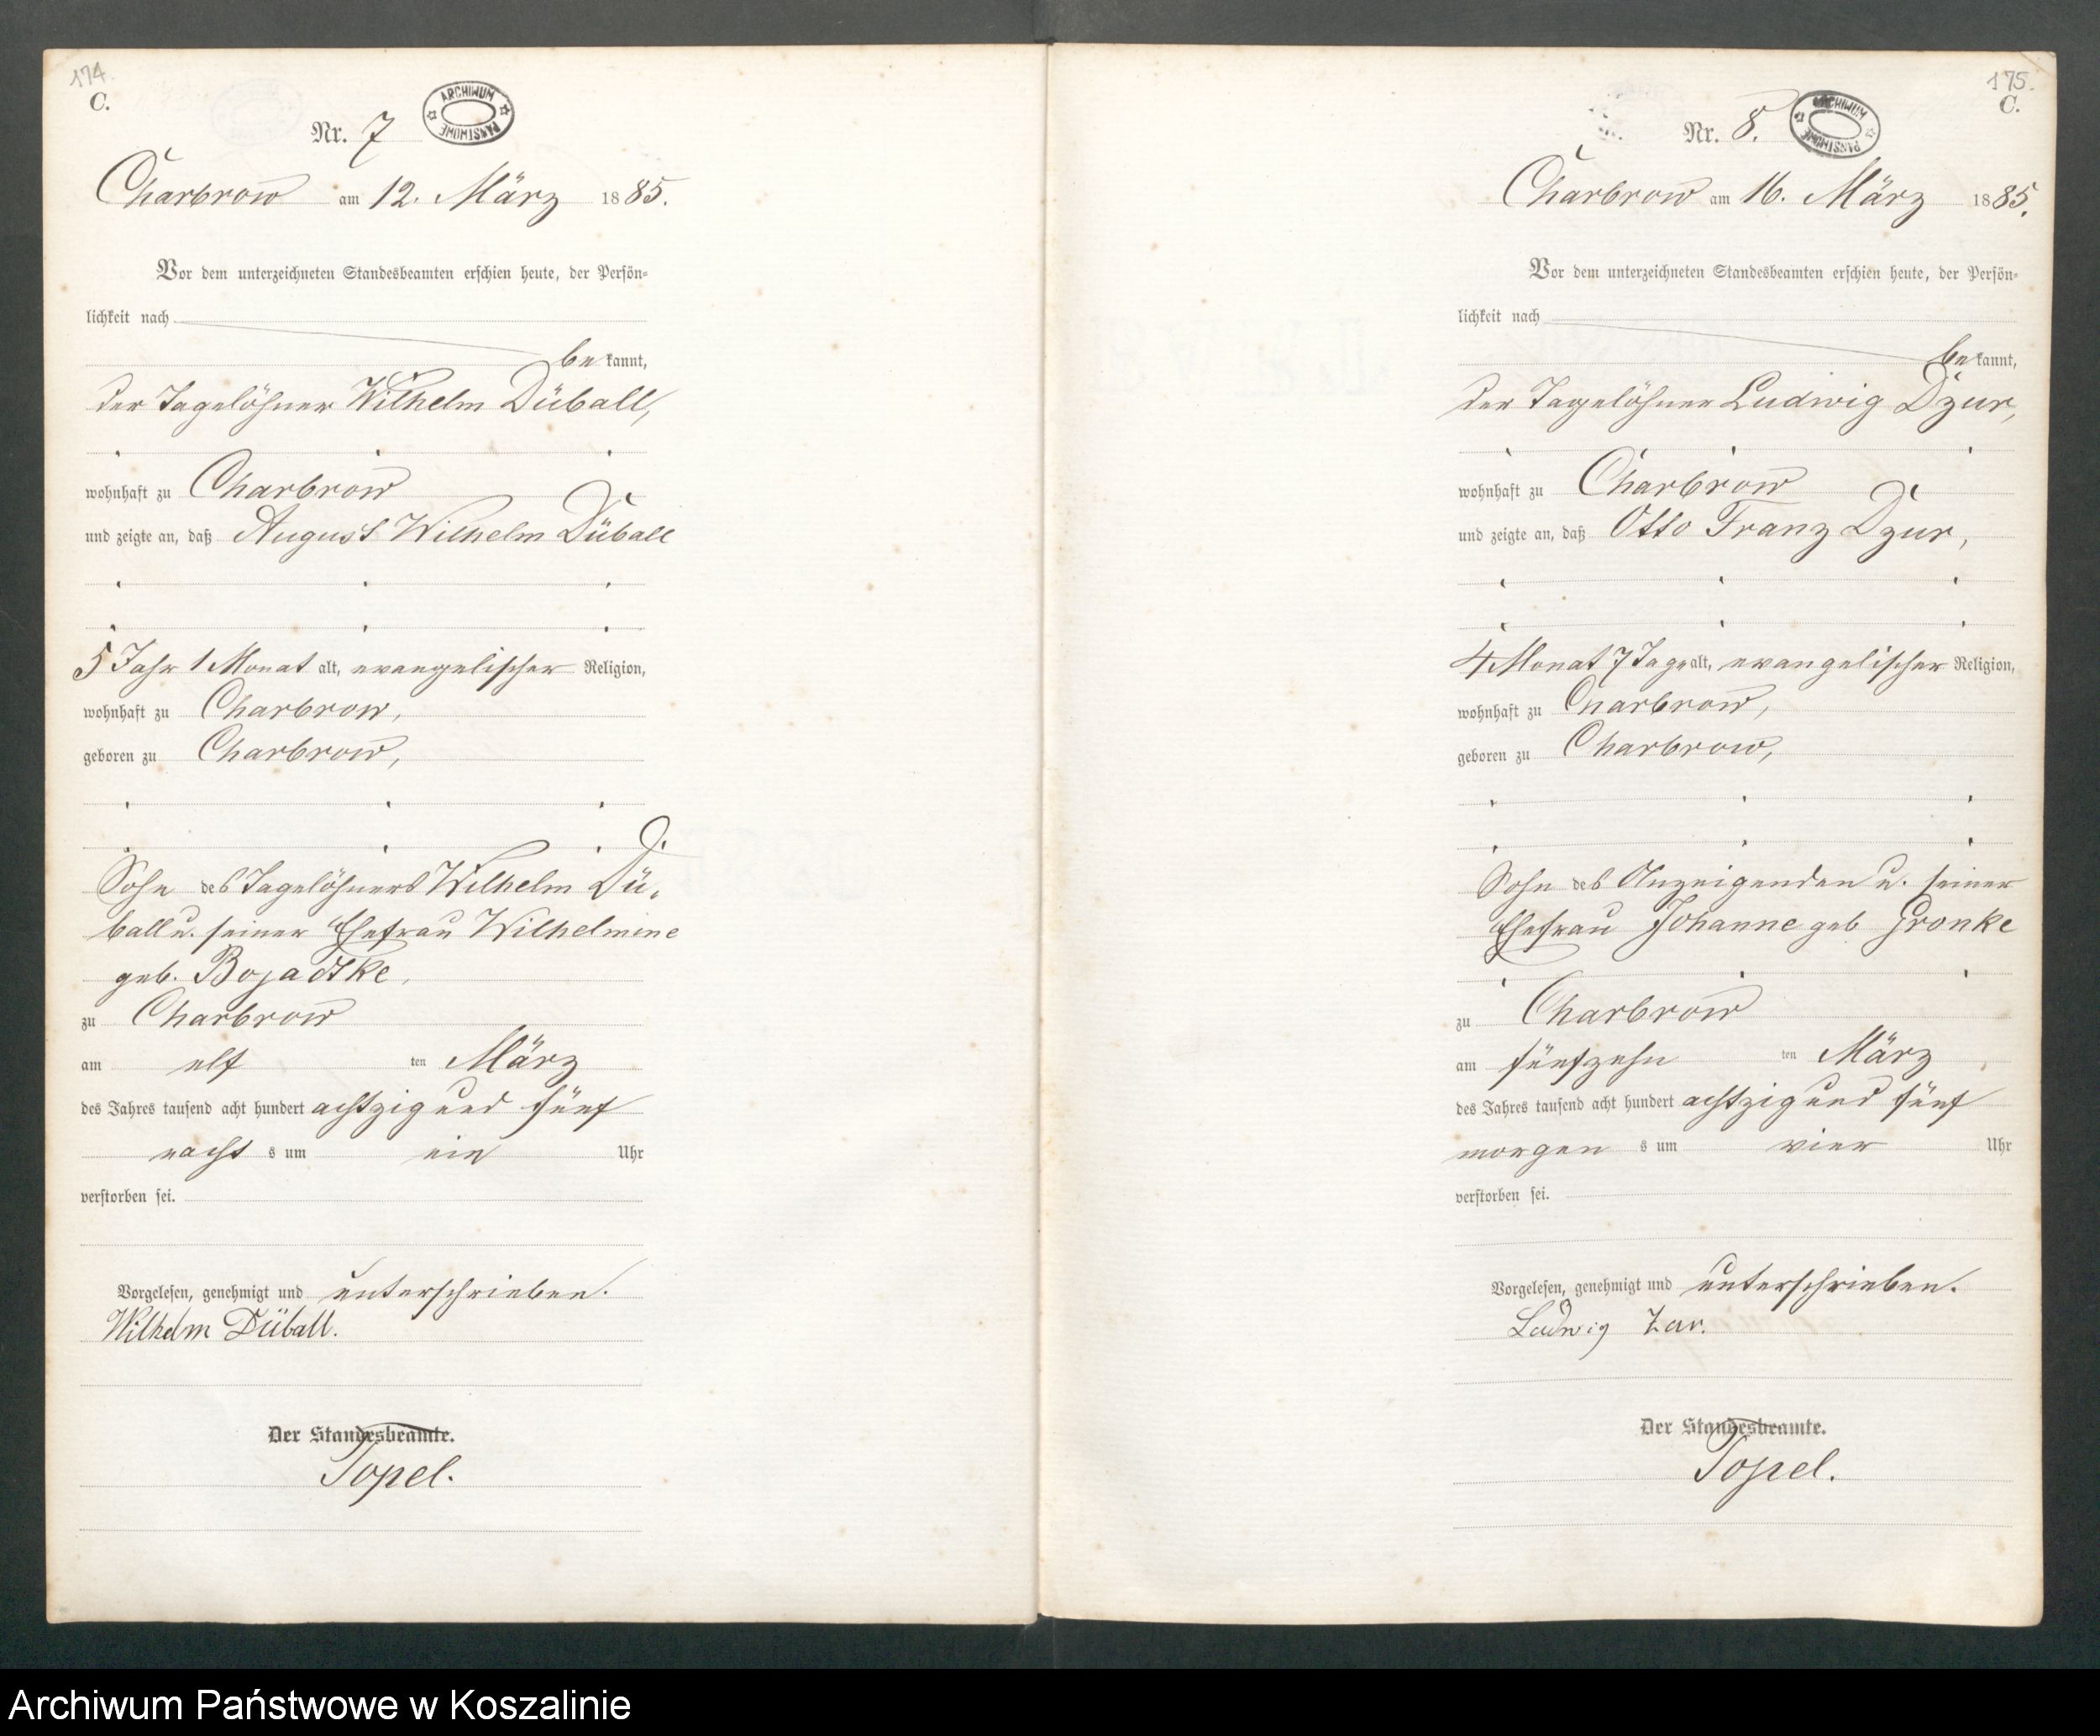 174.
C.
ARCHIWUM PAŃSTWOWE
Nr. 7
Charbrow am 12. März 1885.
Vor dem unterzeichneten Standesbeamten erschien heute, der Persön-
lichkeit nach
be kannt,
der Tagelöhner Wilhelm Düball,
wohnhaft zu Charbrow
und zeigte an, daß August Wilhelm Düball
5 Jahr 1 Monat alt, evangelischer Religion,
wohnhaft zu Charbrow,
geboren zu Charbrow,
Sohn des Tagelöhners Wilhelm Dü-
ball u. seiner Ehefrau Wilhelmine
geb. Bojadtke,
zu Charbrow
am elf ten März
des Jahres tausend acht hundert achtzig und fünf
nacht s um ein Uhr
verstorben sei.
Vorgelesen, genehmigt und unterschrieben.
Wilhelm Düball.
Der Standesbeamte.
Topel.
175.
C.
ARCHIWUM PAŃSTWOWE
Nr. 8.
Charbrow am 16. März 1885.
Vor dem unterzeichneten Standesbeamten erschien heute, der Persön-
lichkeit nach
be kannt,
der Tagelöhner Ludwig Dzur,
wohnhaft zu Charbrow
und zeigte an, daß Otto Franz Dzur,
4 Monat 7 Tage alt, evangelischer Religion,
wohnhaft zu Charbrow,
geboren zu Charbrow,
Sohn des Anzeigenden u. seiner
Ehefrau Johanne geb Gronke
zu Charbrow
am fünfzehn ten März
des Jahres tausend acht hundert achtzig und fünf
morgen s um vier Uhr
verstorben sei.
Vorgelesen, genehmigt und unterschrieben.
Ludwig Zur.
Der Standesbeamte.
Topel.
Archiwum Państwowe w Koszalinie